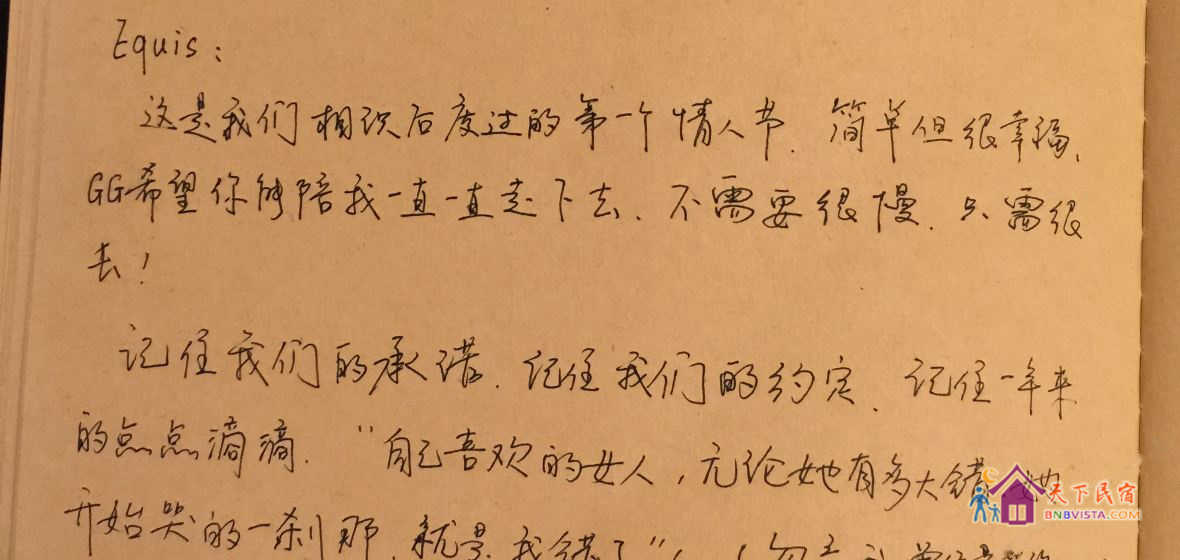 Equis:
这是我们相识后度过的第一个情人节.简单但很幸福、
GG希望你能陪我一直一直走下去、不需要很慢.只需很
去!
记住我们的承诺.记住我们的约定、记住一年来
的点点滴滴."自己喜欢的女人,无论她有多大错 她
开始哭的一刹那.就是我错了"
天下民宿
BNBVISTA.COM